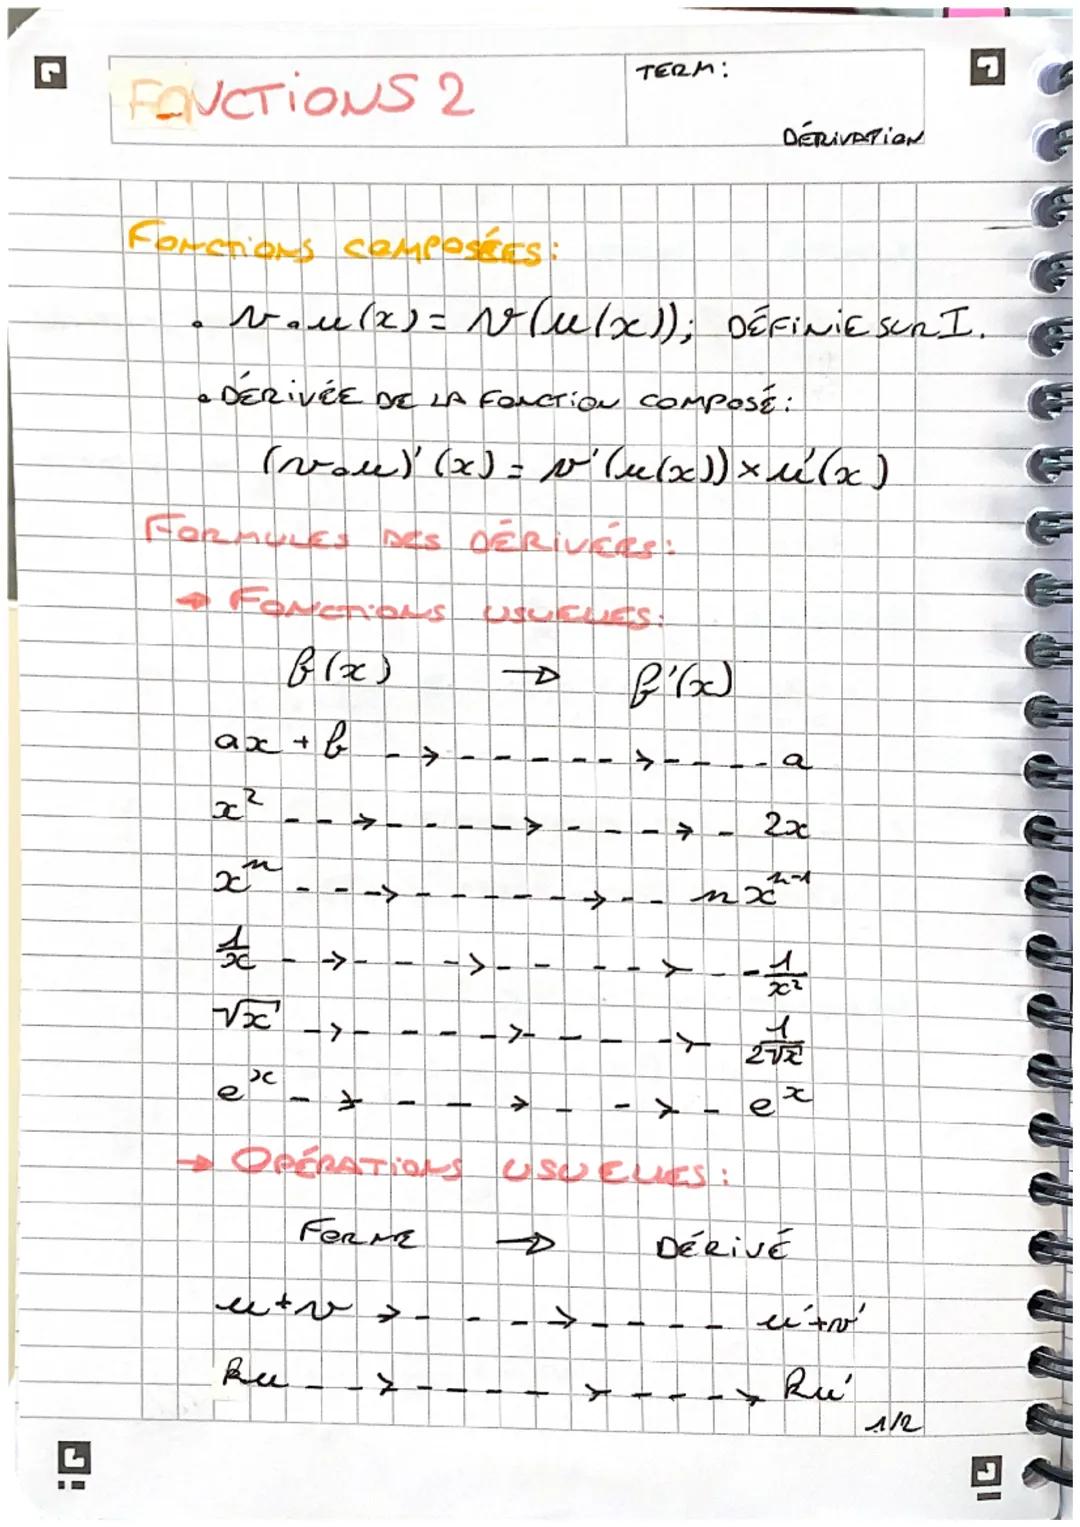 FONCTIONS 2
TERM:
DÉRIVATION
FONCTIONS COMPOSÉES:
• v∘u(x) = v(u(x)); DÉFINIE SUR I.
• DÉRIVÉE DE LA FONCTION COMPOSÉ:
(v∘u)'(x) = v'(u(x)) × u'(x)
FORMULES DES DÉRIVÉES:
→ FONCTIONS USUELLES:
f(x) → f'(x)
ax + b --→------→----- a
x² ---→-----→----→-- 2x
xⁿ ---→------→--- nxⁿ⁻¹
1/x --→----→-----→-- -1/x²
√x -→----→----→ 1/2√x
eˣ --→---→---→-- eˣ
→ OPÉRATIONS USUELLES:
FORME → DÉRIVÉ
u+v →----→----- u'+v'
ku ---→-----→----→ ku'
1/2